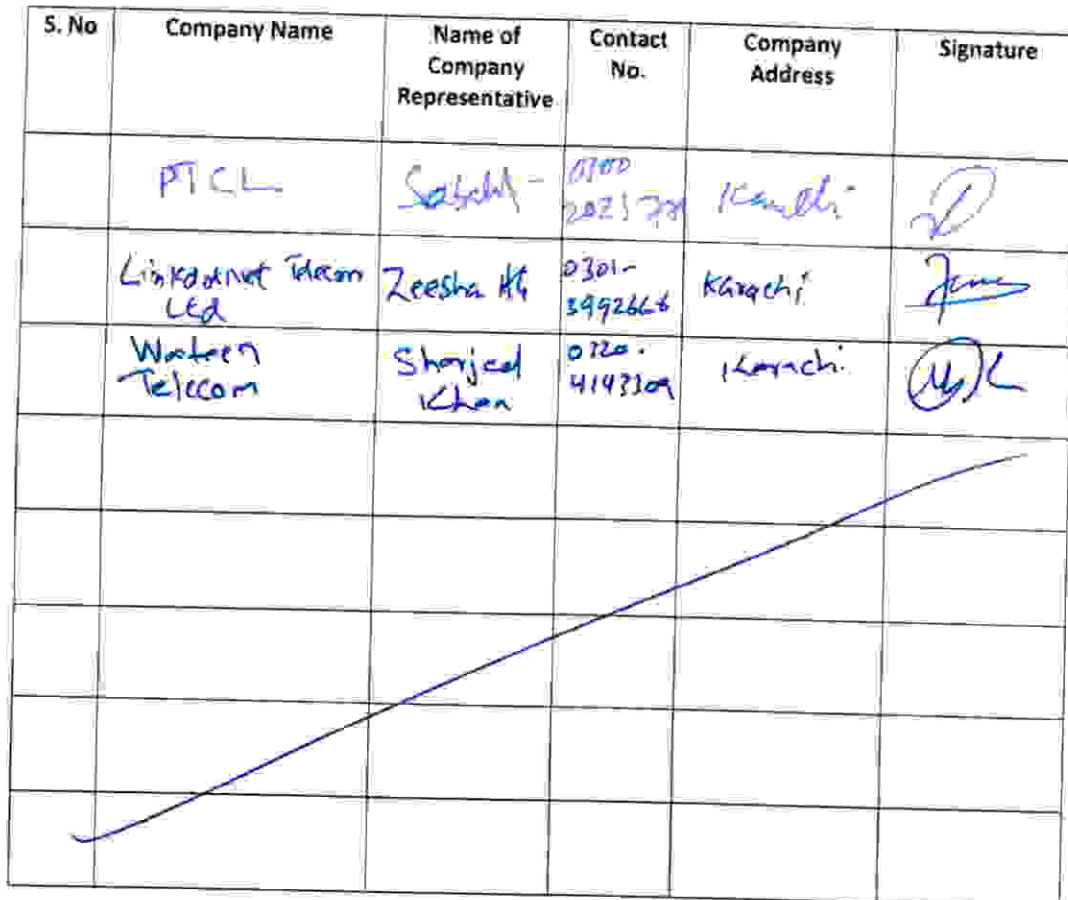 S. No Company Name Name of Company Representative Contact No. Company Address Signature
PTCL Karachi
Linkdotnet Telecom Ltd Zeesha 0301-3992668 Karachi
Wateen Telecom Sharjeel Khan 0320-4143309 Karachi.